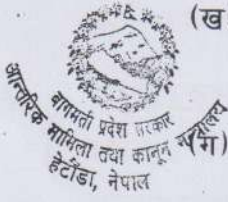 (ख
बागमती प्रदेश सरकार
आन्तरिक मामिला तथा कानून मन्त्रालय
हेटौंडा, नेपाल
(ग)